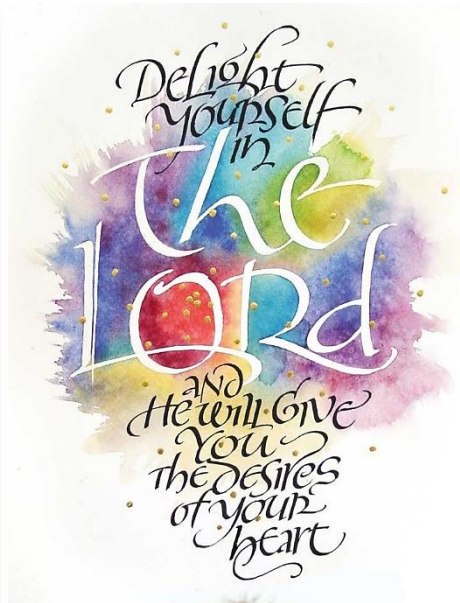 Delight
yourself
in
The
LORD
and
He will Give
You
The desires
of your
heart